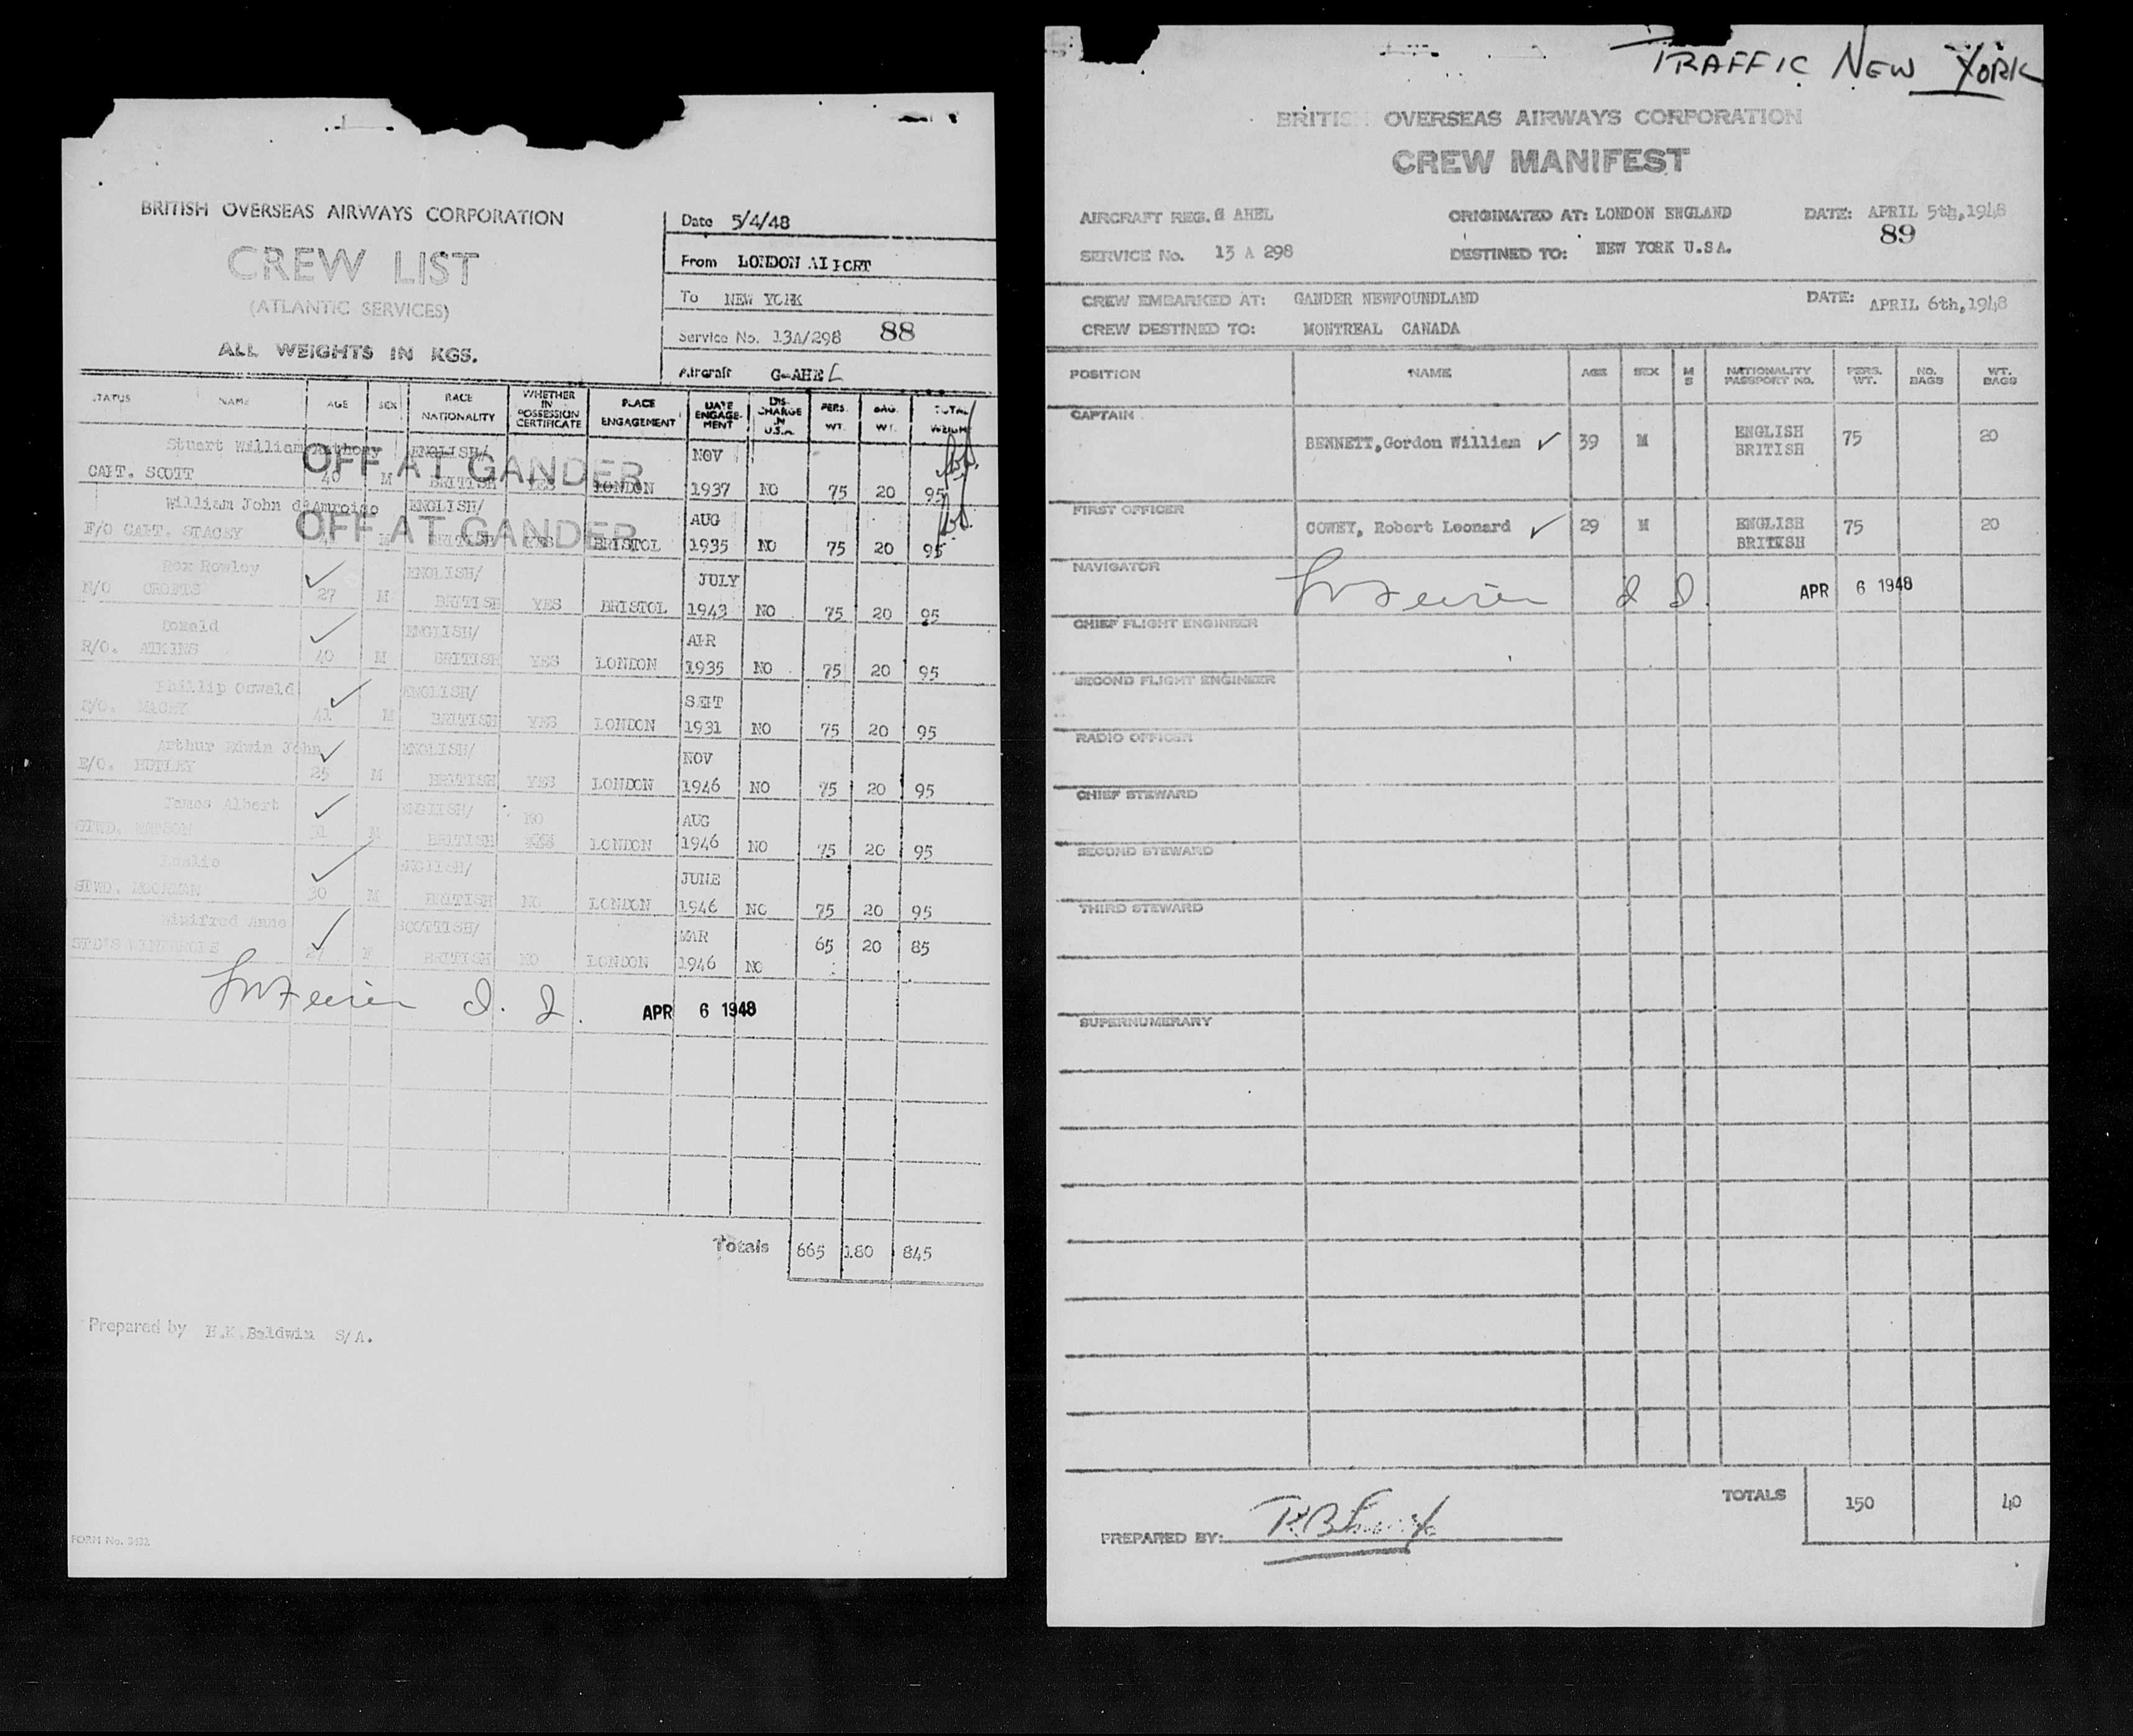 BRITISH OVERSEAS AIRWAYS CORPORATION
CREW LIST
(ATLANTIC SERVICES)
ALL WEIGHTS IN KGS.
Date 5/4/48
From LONDON AI PORT
To NEW YORK
Service No. 13A/298 88
Aircraft G-AHEL
STATUS NAME AGE SEX RACE NATIONALITY WHETHER IN POSSESSION CERTIFICATE PLACE ENGAGEMENT DATE ENGAGE-MENT DIS-CHARGE IN U.S.A. PERS. WT. BAG. WT. TOTAL WEIGHT
Stuart William Anthony ENGLISH/ NOV
OFF AT GANDER
CAPT. SCOTT 40 M BRITISH YES LONDON 1937 NO 75 20 95
William John ENGLISH/ AUG
OFF AT GANDER
F/O CAPT. STACEY M BRITISH YES BRISTOL 1935 NO 75 20 95
Rex Rowley ENGLISH/ JULY
N/O CROFTS 27 M BRITISH YES BRISTOL 1943 NO 75 20 95
Donald ENGLISH/ APR
R/O. ATKINS 40 M BRITISH YES LONDON 1935 NO 75 20 95
Phillip Oswald ENGLISH/ SEPT
MACEY 41 M BRITISH YES LONDON 1931 NO 75 20 95
Arthur Edwin John ENGLISH/ NOV
E/O. HUTLEY 25 M BRITISH YES LONDON 1946 NO 75 20 95
James Albert ENGLISH/ NO AUG
STWD. WATSON 31 M BRITISH YES LONDON 1946 NO 75 20 95
Leslie ENGLISH/ JUNE
STWD. MOORMAN 30 M BRITISH NO LONDON 1946 NO 75 20 95
Winifred Anne SCOTTISH/ MAR 65 20 85
27 F BRITISH NO LONDON 1946 NO
APR 6 1948
Totals 665 180 845
Prepared by H.K.Baldwin S/A.
FORM No.
TRAFFIC NEW YORK
BRITISH OVERSEAS AIRWAYS CORPORATION
CREW MANIFEST
AIRCRAFT REG. G AHEL ORIGINATED AT: LONDON ENGLAND DATE: APRIL 5th,1948
89
SERVICE No. 13 A 298 DESTINED TO: NEW YORK U.S.A.
CREW EMBARKED AT: GANDER NEWFOUNDLAND DATE: APRIL 6th,1948
CREW DESTINED TO: MONTREAL CANADA
POSITION NAME AGE SEX M S NATIONALITY PASSPORT NO. PERS. WT. NO. BAGS WT. BAGS
CAPTAIN
BENNETT,Gordon William 39 M ENGLISH BRITISH 75 20
FIRST OFFICER
COWEY, Robert Leonard 29 M ENGLISH BRITISH 75 20
NAVIGATOR
APR 6 1948
CHIEF FLIGHT ENGINEER
SECOND FLIGHT ENGINEER
RADIO OFFICER
CHIEF STEWARD
SECOND STEWARD
THIRD STEWARD
SUPERNUMERARY
TOTALS 150 40
PREPARED BY: